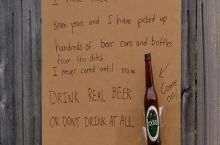 seven years and I have picked up
hundreds of beer cans and bottles
from this ditch.
I never cared until now.
Come on!
DRINK REAL BEER
OR DONT DRINK AT ALL